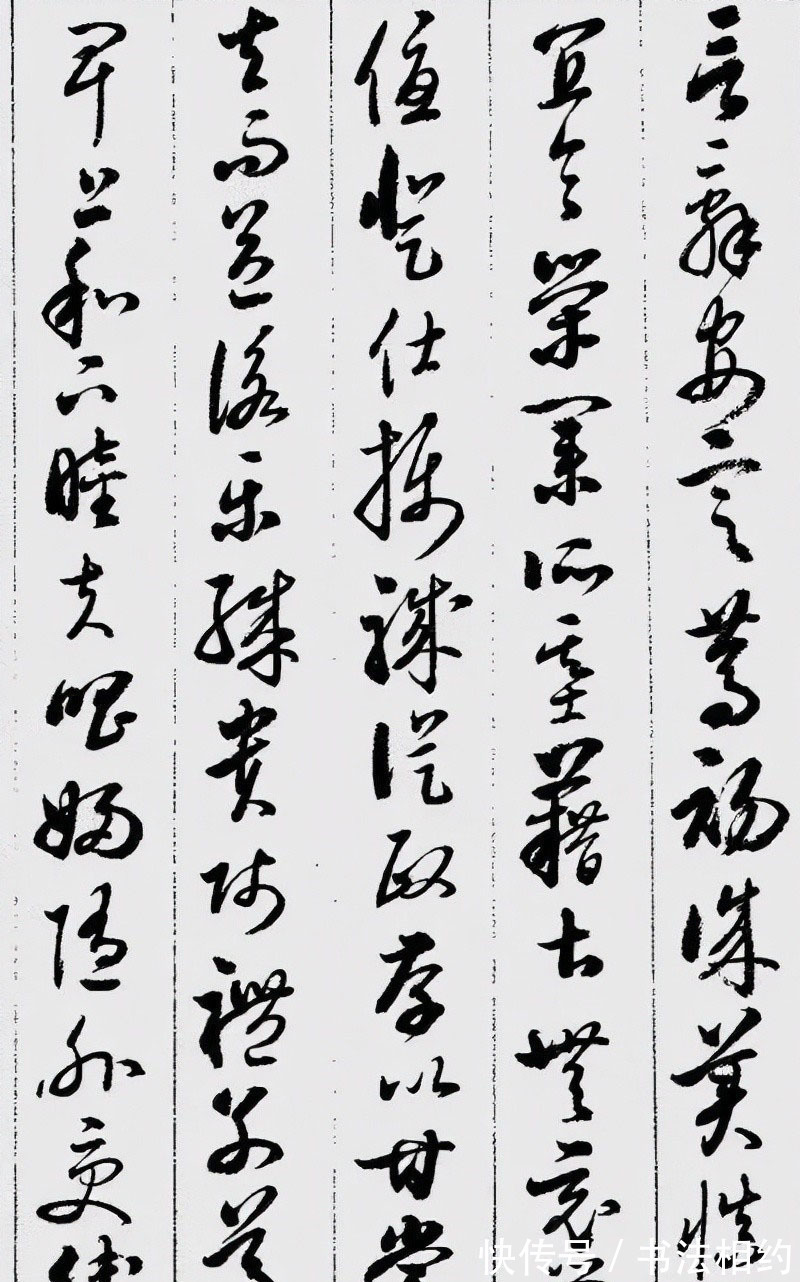 言辭安定篤初誠美慎
宜令榮業所基籍甚無竟
優登仕攝職從政存以甘棠
去而益詠樂殊貴賤禮別尊
卑上和下睦夫唱婦隨外受傅
快传号 / 书法相约